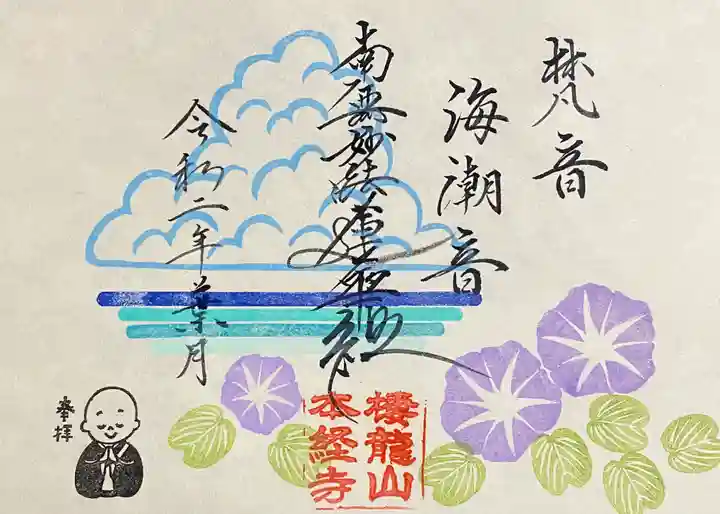 梵音
海潮音
南無妙法蓮華経
令和二年葉月
奉拝
棲龍山
本経寺